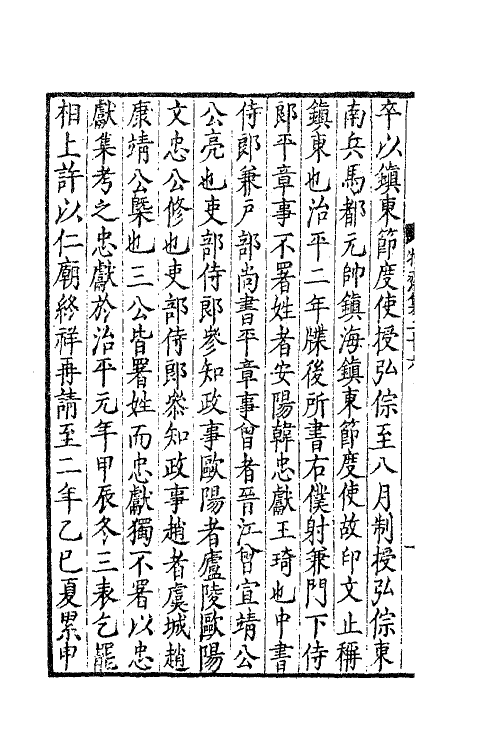 卒以鎮東節度使授弘倧至八月制授弘倧東
南兵馬都元帥鎮海鎮東節度使故印文止稱
鎮東也治平二年牒後所書右僕射兼門下侍
郎平章事不署姓者安陽韓忠獻王琦也中書
侍郎兼戶部尚書平章事曾者晉江曾宣靖公
公亮也吏部侍郎參知政事歐陽者廬陵歐陽
文忠公修也吏部侍郎叅知政事趙者虞城趙
康靖公槩也三公皆署姓而忠獻獨不署以忠
獻集考之忠獻於治平元年甲辰冬三表乞罷
相上許以仁廟終祥再請至二年乙巳夏累申